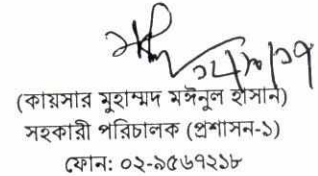 ১৮/১০/১৭
(কায়সার মুহাম্মদ মঈনুল হাসান)
সহকারী পরিচালক (প্রশাসন-১)
ফোন: ০২-৯৫৬৭২১৮